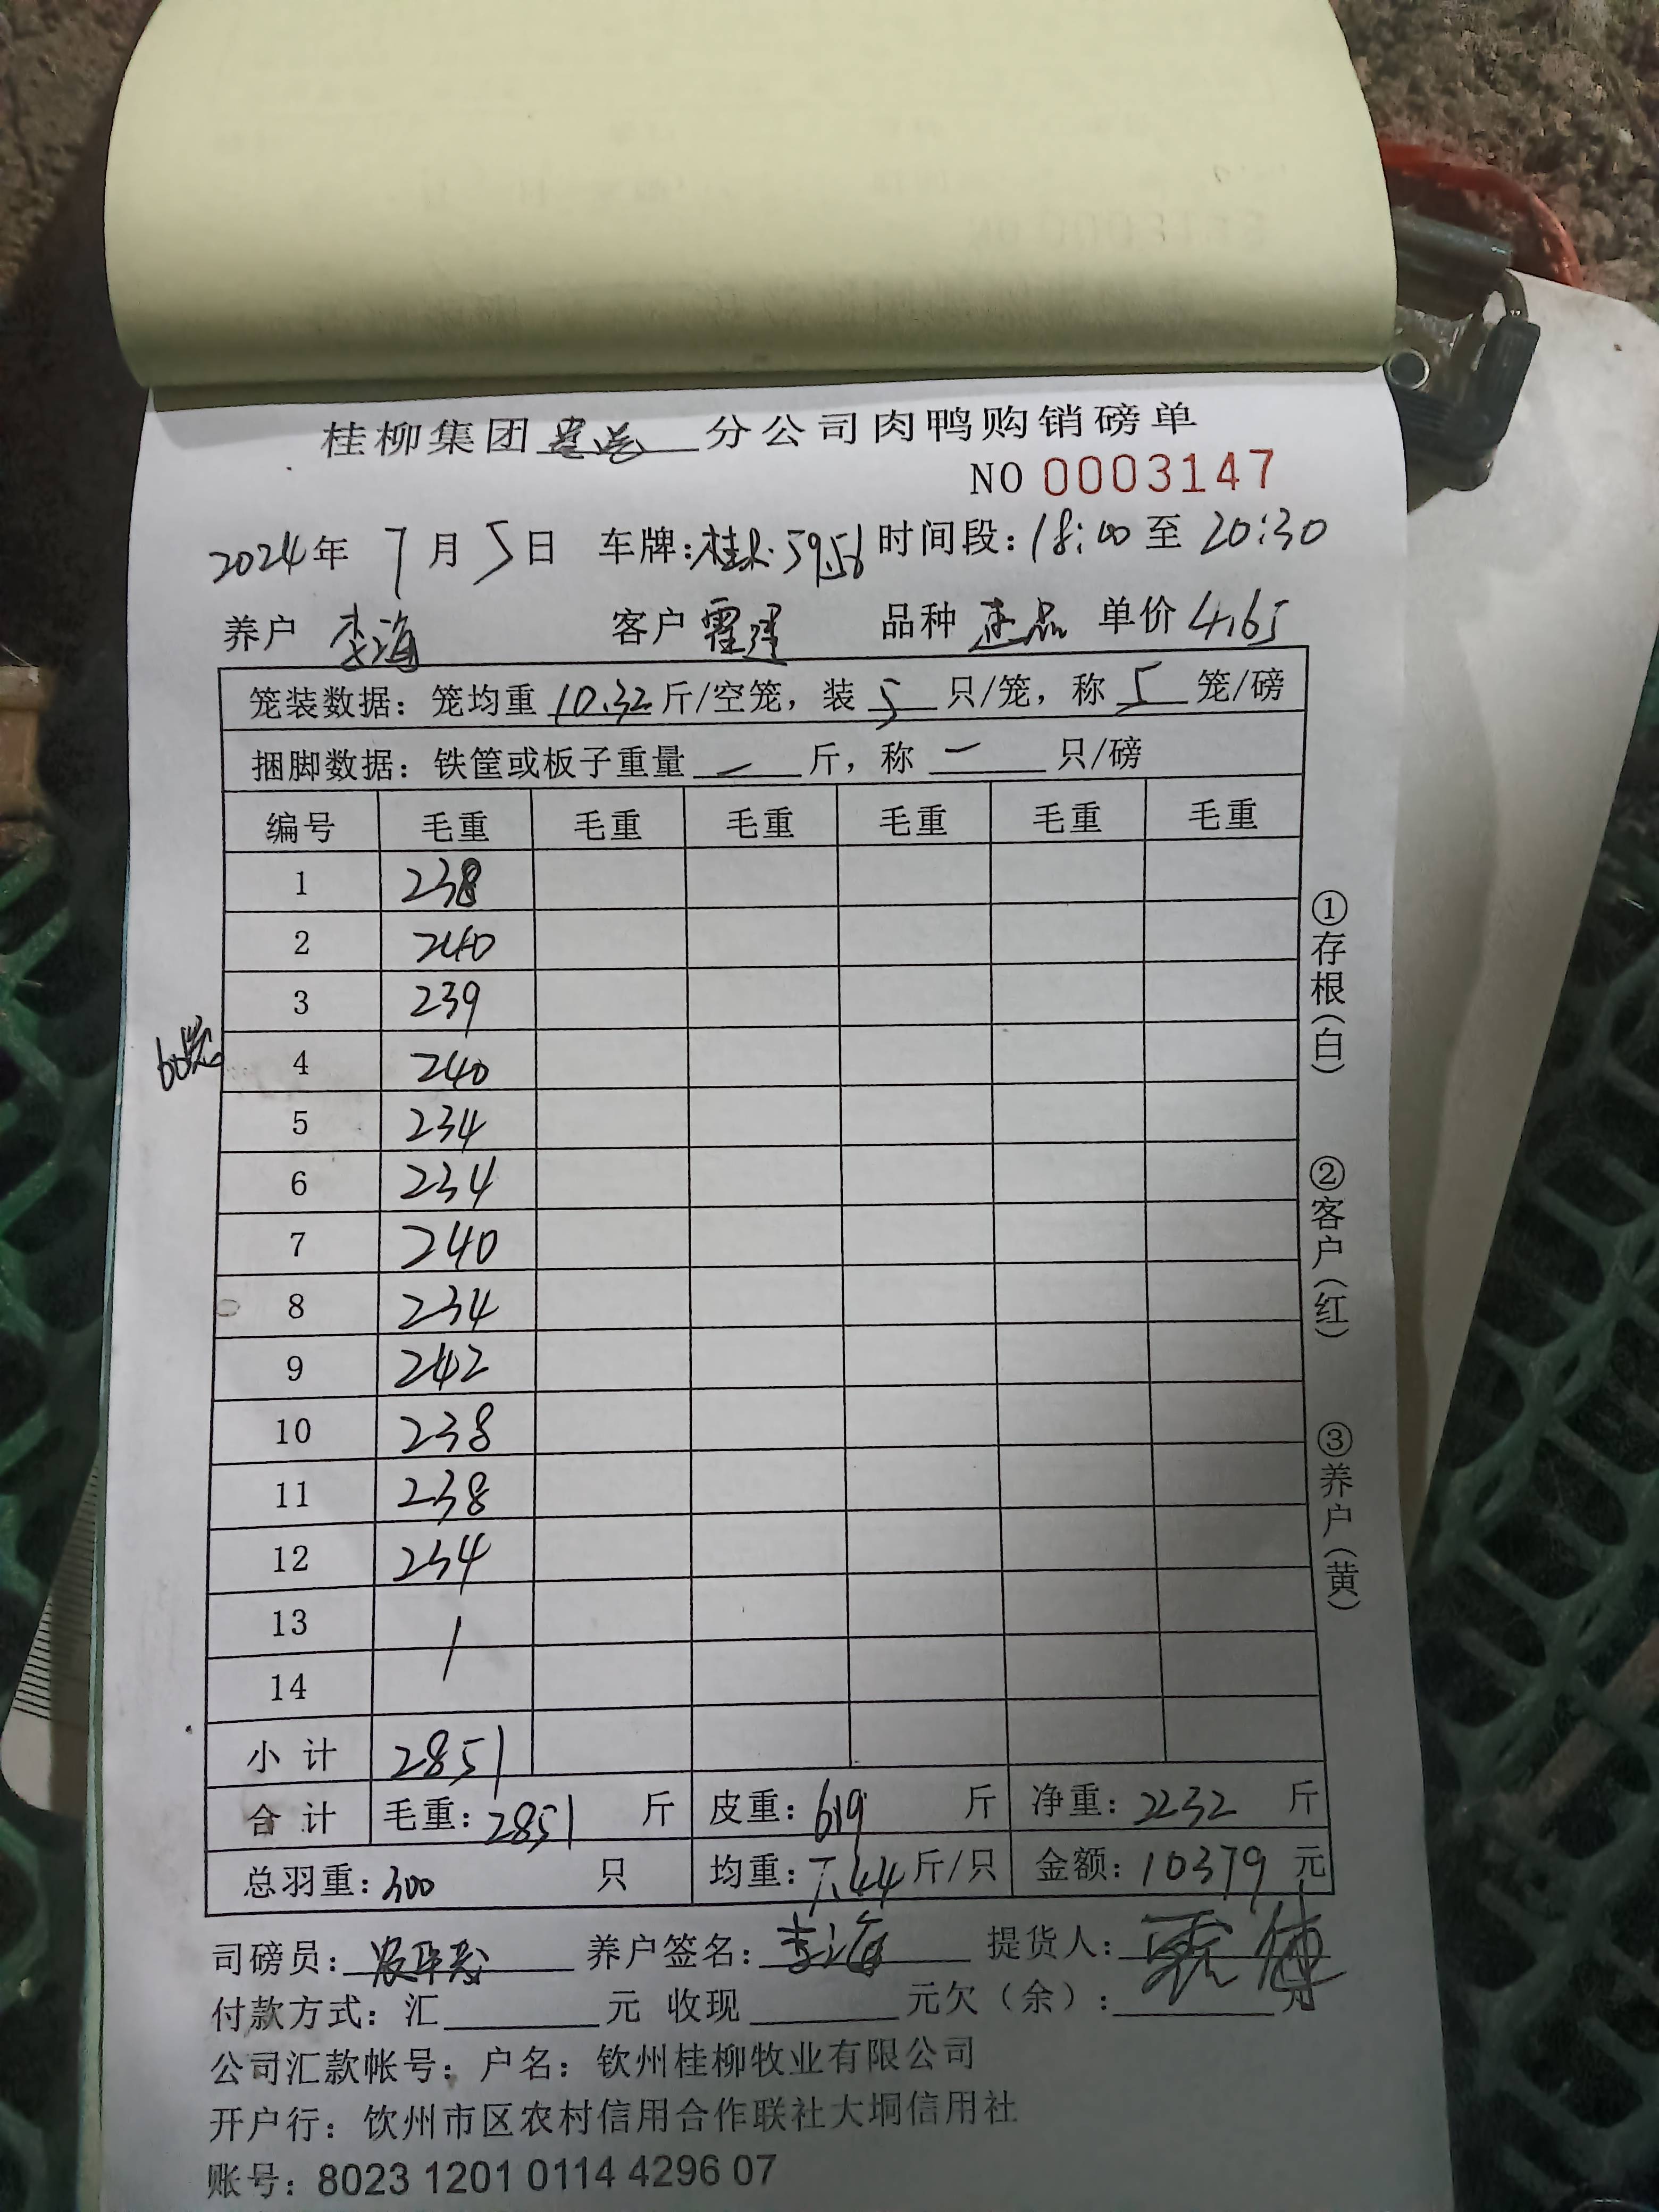 桂柳集团 分公司肉鸭购销磅单
NO 0003147
2024年 7月 5日 车牌:桂 5956 时间段:18:00至 20:30
养户 李海 客户 霍建 品种 单价 4.65
笼装数据: 笼均重 10.32 斤/空笼, 装 5 只/笼, 称 5 笼/磅
捆脚数据: 铁筐或板子重量 — 斤, 称 — 只/磅
编号 毛重 毛重 毛重 毛重 毛重 毛重
1 238
2 240
3 239
60笼
4 240
5 234
6 234
7 240
8 234
9 242
10 238
11 238
12 234
13 /
14
小计 2851
合计 毛重: 2851 斤 皮重: 619 斤 净重: 2232 斤
总羽重: 300 只 均重: 7.44 斤/只 金额: 10379 元
①存根(白)
②客户(红)
③养户(黄)
司磅员: 养户签名: 李海 提货人:
付款方式: 汇 元 收现 元欠(余): 元
公司汇款帐号: 户名: 钦州桂柳牧业有限公司
开户行: 钦州市区农村信用合作联社大垌信用社
账号: 8023 1201 0114 4296 07